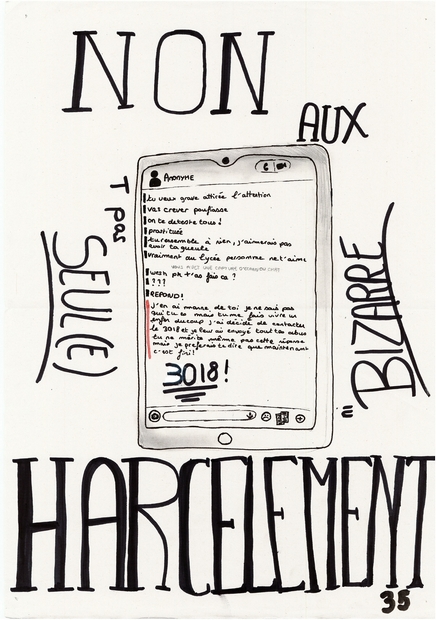 NON
AUX
T pas
SEUL(E)
BIZARRE
Anonyme
tu veux grave attirée l'attention
vas crever poufiasse
on te deteste tous !
prostituée
tu ressemble à rien, j'aimerais pas
avoir ta gueule
vraiment au lycée personne ne t'aime
VOUS AVEZ PRIS UNE CAPTURE D'ECRAN
wesh pk t'as fais ca ?
???
REPOND!
j'en ai marre de toi je ne sais pas
qui tu es mais tu me fais vivre un
enfer du coup j'ai décidé de contacter
le 3018 et je leur ai envoyé tout ta abus
tu ne mérite même pas cette réponse
mais je préferais te dire que maintenant
c'est fini!
3018!
HARCELEMENT
35